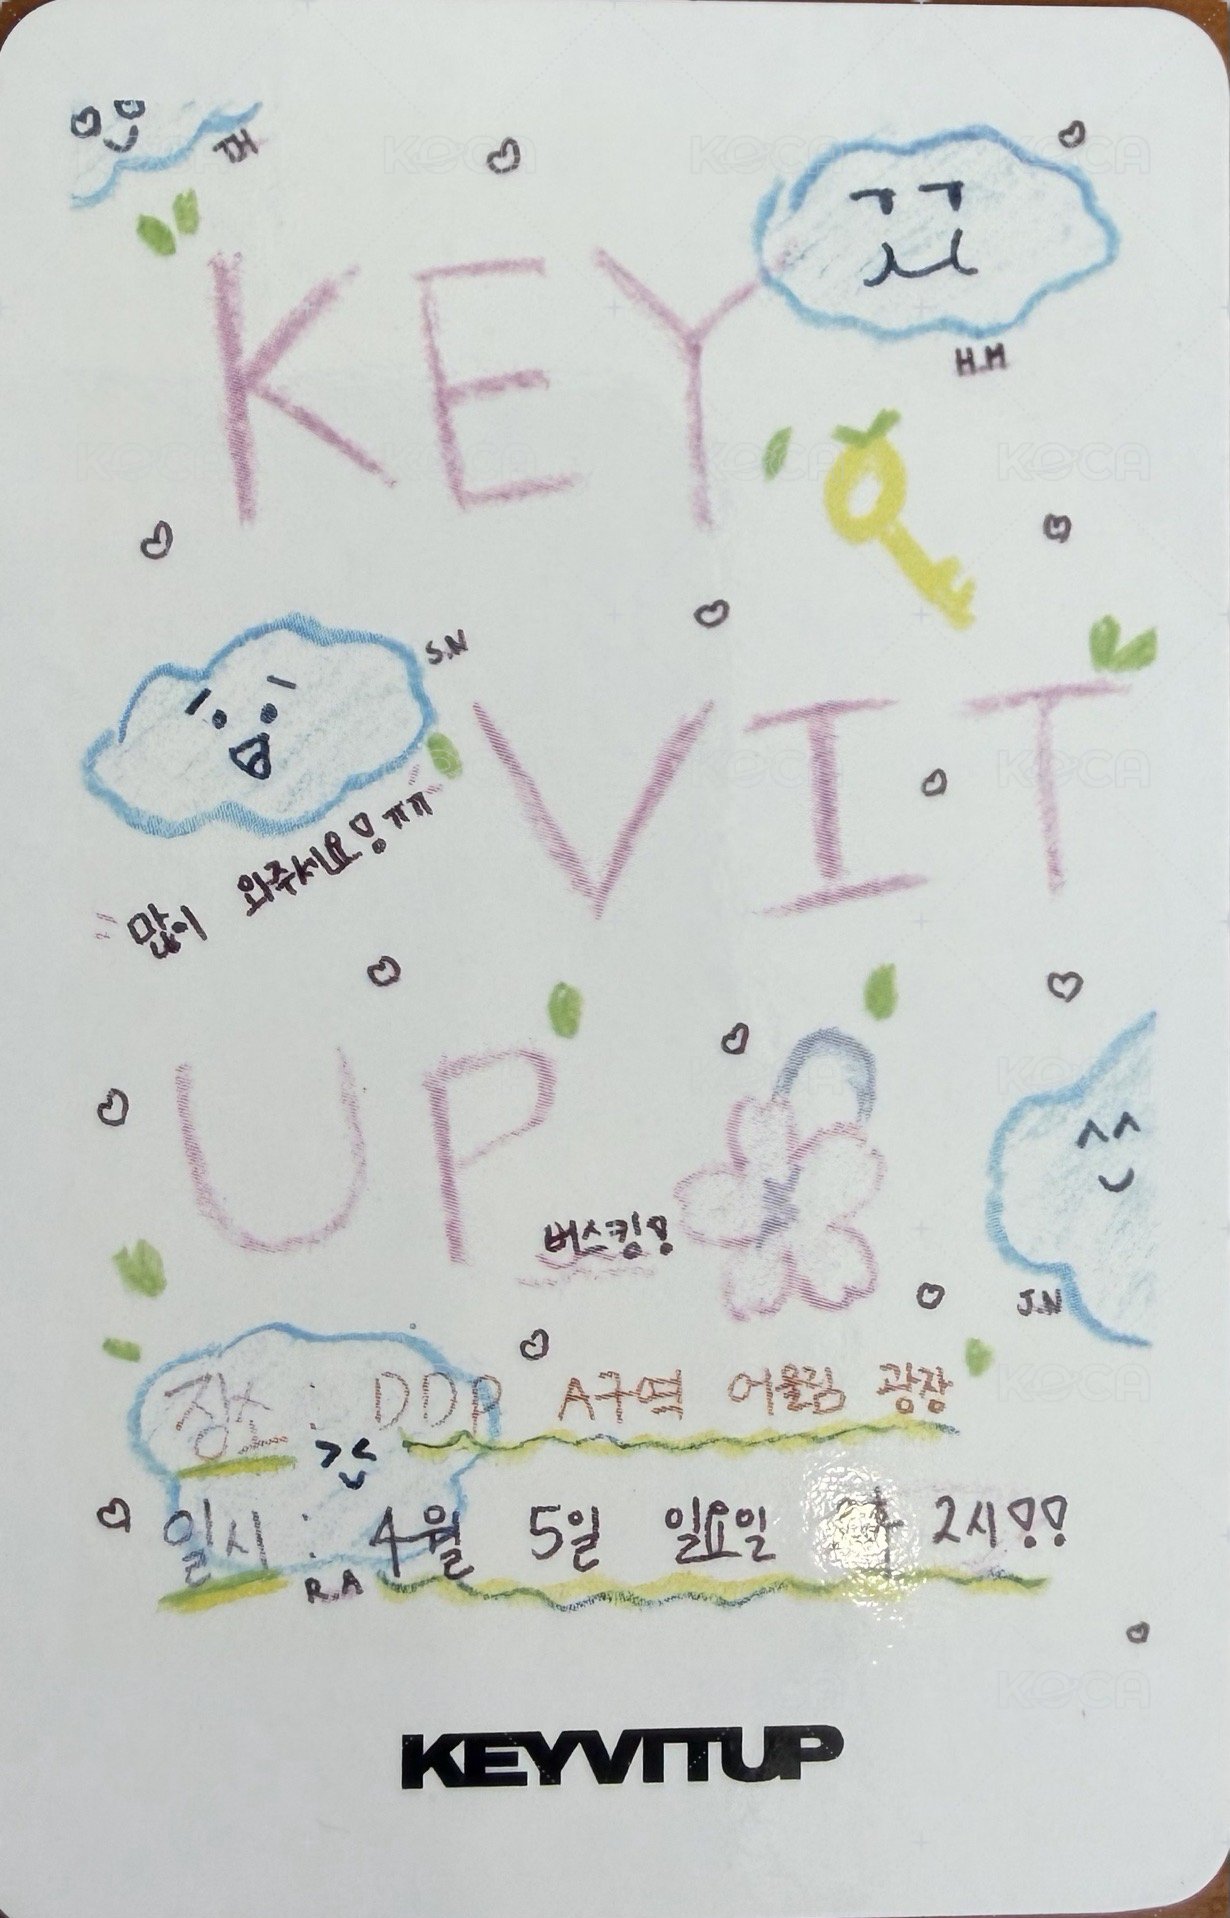 KEY
H.M
S.N
VIT
많이 와주세요! ㅠㅠ
UP
버스킹!
J.N
장소 : DDP A구역 어울림 광장
일시 : 4월 5일 일요일 2시!!
R.A
KEYVITUP